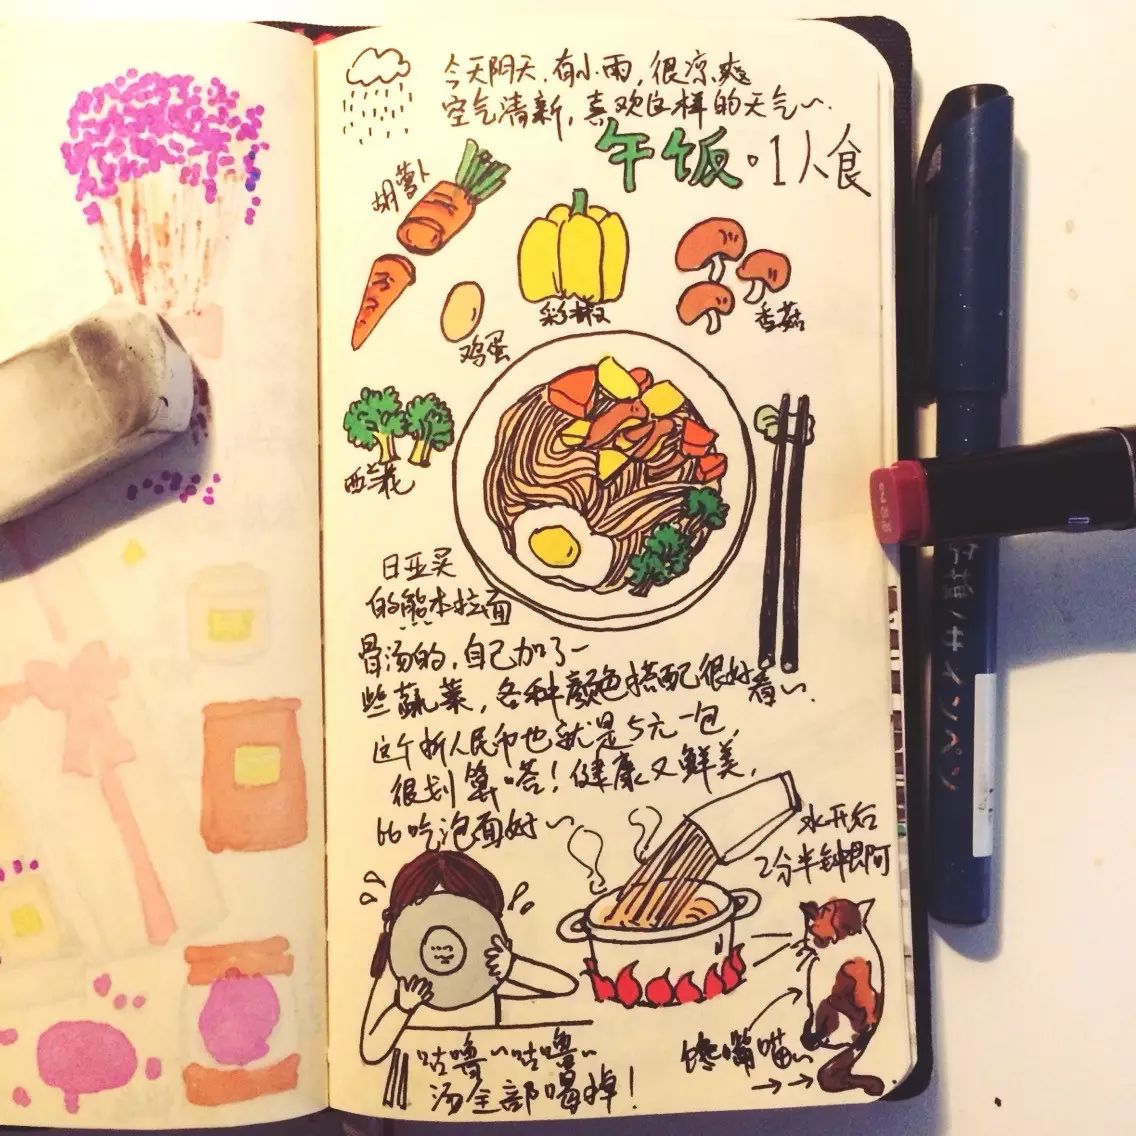 今天阴天，有小雨，很凉爽
空气清新，喜欢这样的天气~.
午饭·1人食
胡萝卜
彩椒
香菇
鸡蛋
西兰花
日亚买
的熊本拉面
骨汤的，自己加了一
些蔬菜，各种颜色搭配很好看~.
这个折人民币也就是5元一包，
很划算嗒！健康又鲜美，
比吃泡面好~
水开后
2分半钟即可
馋嘴喵~
咕噜~咕噜~
汤全部喝掉！